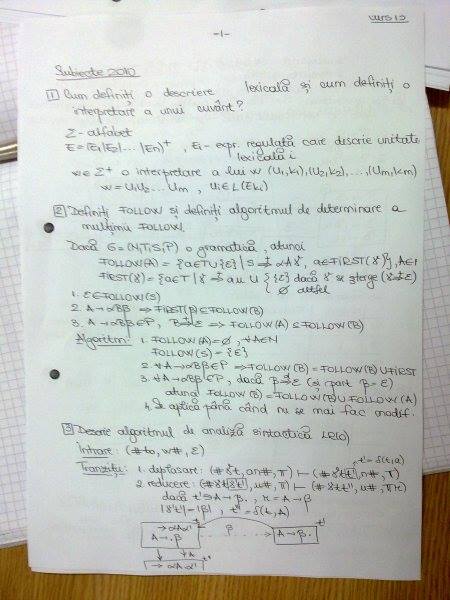 curs 13
-1-
Subiecte 2010
1 Cum definiți o descriere lexicală și cum definiți o
interpretare a unui cuvânt?
Σ - alfabet
E = (E1|E2|...|En)+, Ei - expr. regulată care descrie unitatea
lexicală i
w∈Σ+ o interpretare a lui w (u1,k1),(u2,k2),...,(um,km)
w = u1u2...um, ui∈L(Eki)
2 Definiți FOLLOW și definiți algoritmul de determinare a
mulțimii FOLLOW.
Dacă G=(N,T,S,P) o gramatică, atunci
FOLLOW(A) = {a∈T∪{ε} | S ⇒ αAγ, a∈FIRST(γ)}, A∈N
FIRST(γ) = {a∈T | γ ⇒ au ∪ { {ε} dacă γ se șterge (γ⇒ε)
∅ altfel
1. ε∈FOLLOW(S)
2. A→αBβ ⇒ FIRST(β)⊆FOLLOW(B)
3. A→αBβ∈P, β⇒ε ⇒ FOLLOW(A)⊆FOLLOW(B)
Algoritm: 1. FOLLOW(A)=∅, ∀A∈N
FOLLOW(S) = {ε}
2. ∀A→αBβ∈P ⇒ FOLLOW(B)=FOLLOW(B)∪FIRST
3. ∀A→αBβ∈P, dacă β⇒ε (și part β=ε)
atunci FOLLOW(B) = FOLLOW(B)∪FOLLOW(A)
4. Se aplică până când nu se mai fac modif.
3 Descrie algoritmul de analiză sintactică LR(0)
Intrare: (#t0, w#, ε)
t'=δ(t,a)
Tranziții: 1. deplasare: (#γt, au#, π) ⊢ (#γtt', u#, π)
2. reducere: (#γtγ't', u#, π) ⊢ (#γtt'', u#, πr)
dacă t'∋A→β., r=A→β
|γ't'|=|β|, t''=δ(t,A)
→αAα'
A→.β
β
t'
A→β.
A
t''
→αA.α'